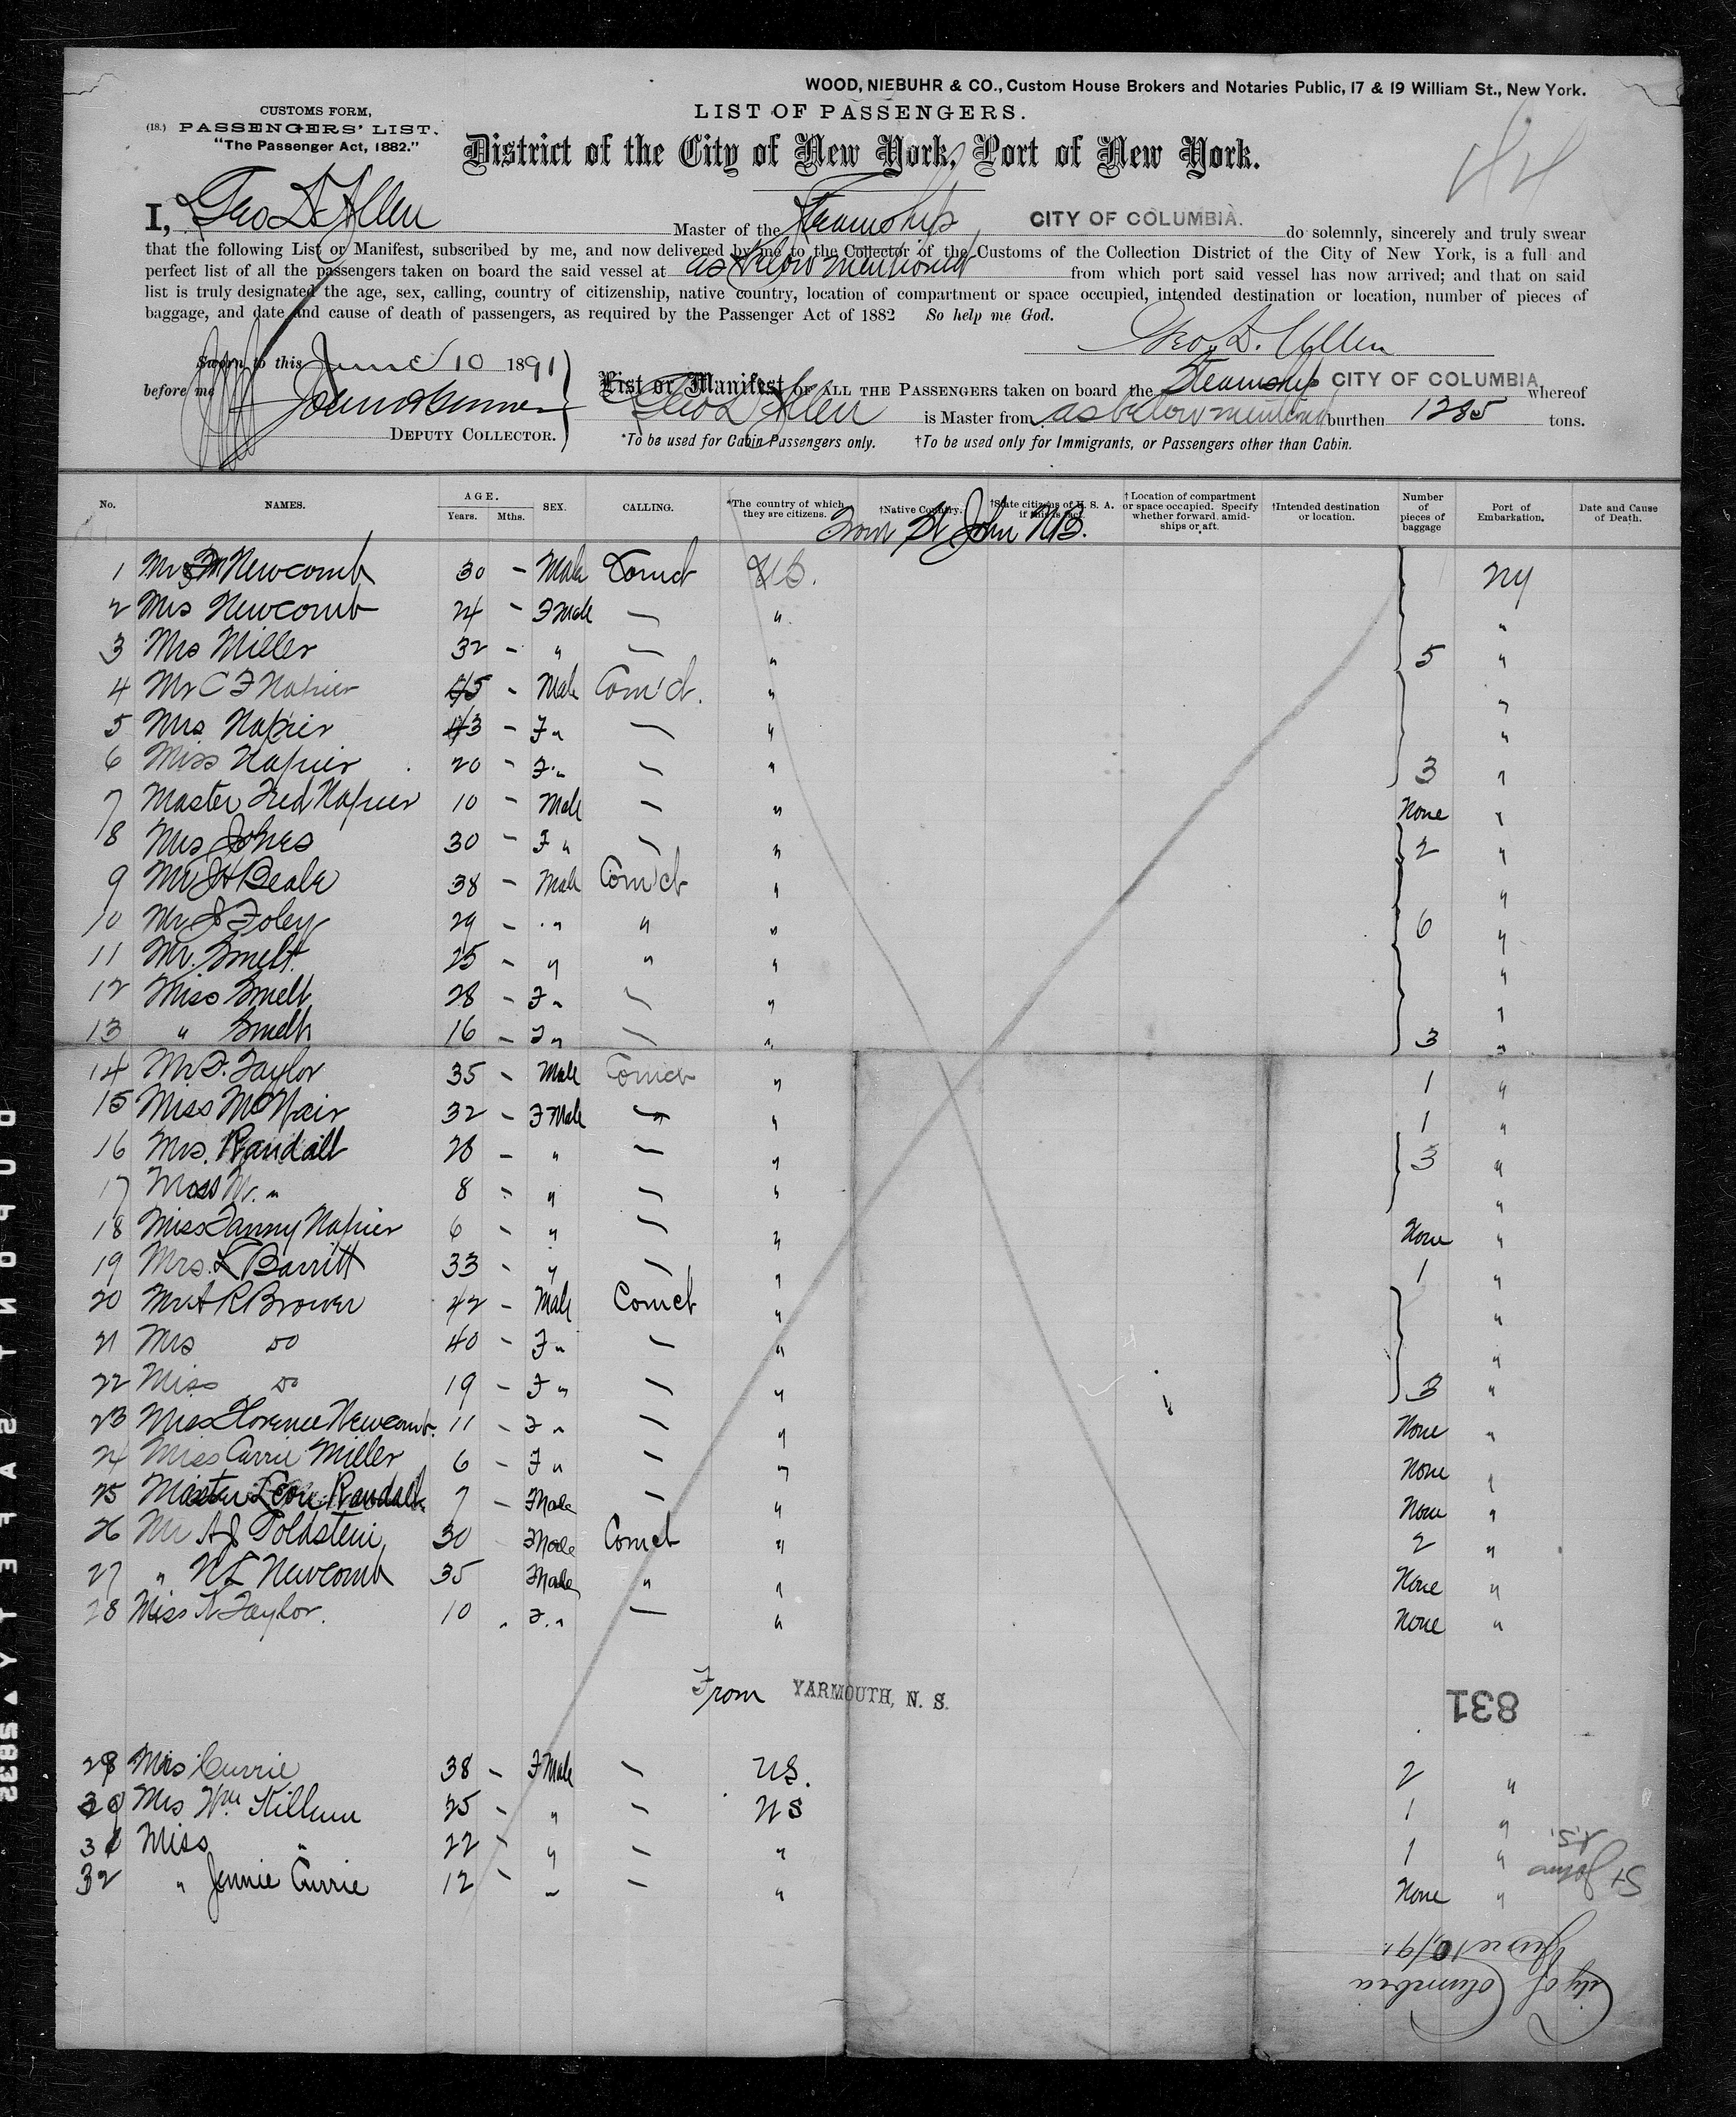 WOOD, NIEBUHR & CO., Custom House Brokers and Notaries Public, 17 & 19 William St., New York.
CUSTOMS FORM,
LIST OF PASSENGERS.
(18.) PASSENGERS' LIST.
"The Passenger Act, 1882."
District of the City of New York, Port of New York.
44
I, Geo D Allen Master of the Steamship CITY OF COLUMBIA. do solemnly, sincerely and truly swear
that the following List or Manifest, subscribed by me, and now delivered by me to the Collector of the Customs of the Collection District of the City of New York, is a full and
perfect list of all the passengers taken on board the said vessel at as below mentioned from which port said vessel has now arrived; and that on said
list is truly designated the age, sex, calling, country of citizenship, native country, location of compartment or space occupied, intended destination or location, number of pieces of
baggage, and date and cause of death of passengers, as required by the Passenger Act of 1882 So help me God.
Geo. D. Allen
Sworn to this June 10 1891
before me
List or Manifest OF ALL THE PASSENGERS taken on board the Steamship CITY OF COLUMBIA whereof
Geo D Allen is Master from as below mentiond burthen 1285 tons.
DEPUTY COLLECTOR.
*To be used for Cabin Passengers only. †To be used only for Immigrants, or Passengers other than Cabin.
No. NAMES. AGE. Years. Mths. SEX. CALLING. *The country of which they are citizens. †Native Country. †State citizens of U. S. A. if this is fact. †Location of compartment or space occupied. Specify whether forward, amidships or aft. †Intended destination or location. Number of pieces of baggage Port of Embarkation. Date and Cause of Death.
From St John NB.
1 Newcomb 30 - Male Comct US. NY
2 Mrs Newcomb 24 - FMale — " "
3 Mrs Miller 32 - " — " 5 "
4 Mr C F Napier 45 - Male Comct. " "
5 Mrs Napier 43 - F " — " "
6 Miss Napier 20 - F. " — " 3 "
7 Master Fred Napier 10 - Male — " None "
8 Mrs Jones 30 - F " — " 2 "
9 Mr J H Beale 38 - Male Comct " "
10 Mr J Foley 29 - " " " 6 "
11 Mr. Smelt. 25 - " " " "
12 Miss Smelt 28 - F " — " "
13 " Smelt 16 - F " — " 3 "
14 Mr F. Taylor 35 - Male Comct " 1 "
15 Miss McNair 32 - FMale — " 1 "
16 Mrs. Randall 28 - " — " 3 "
17 Miss M. " 8 - " — " "
18 Miss Fanny Napier 6 - " — " None "
19 Mrs. L Barritt 33 - " — " 1 "
20 Mr A R Brower 42 - Male Comct " "
21 Mrs do 40 - F " — " "
22 Miss do 19 - F " — " 3 "
23 Miss Florence Newcomb. 11 - F " — " None "
24 Miss Carrie Miller 6 - F " — " None "
25 Master Leon Randall 7 - Male — " None "
26 Mr A J Goldstein 30 Male Comct " 2 "
27 " N L Newcomb 35 Male " " None "
28 Miss K Taylor. 10 " F. " — " None "
From YARMOUTH, N. S.
831
29 Mrs Currie 38 - FMale — US. 2 "
30 Mrs Wm Killum 25 - " — US 1 "
31 Miss " 22 - " — " 1 "
32 " Jennie Currie 12 - " — " None "
St John
City of Columbia
June 10/91.
DUPONT SAFETY